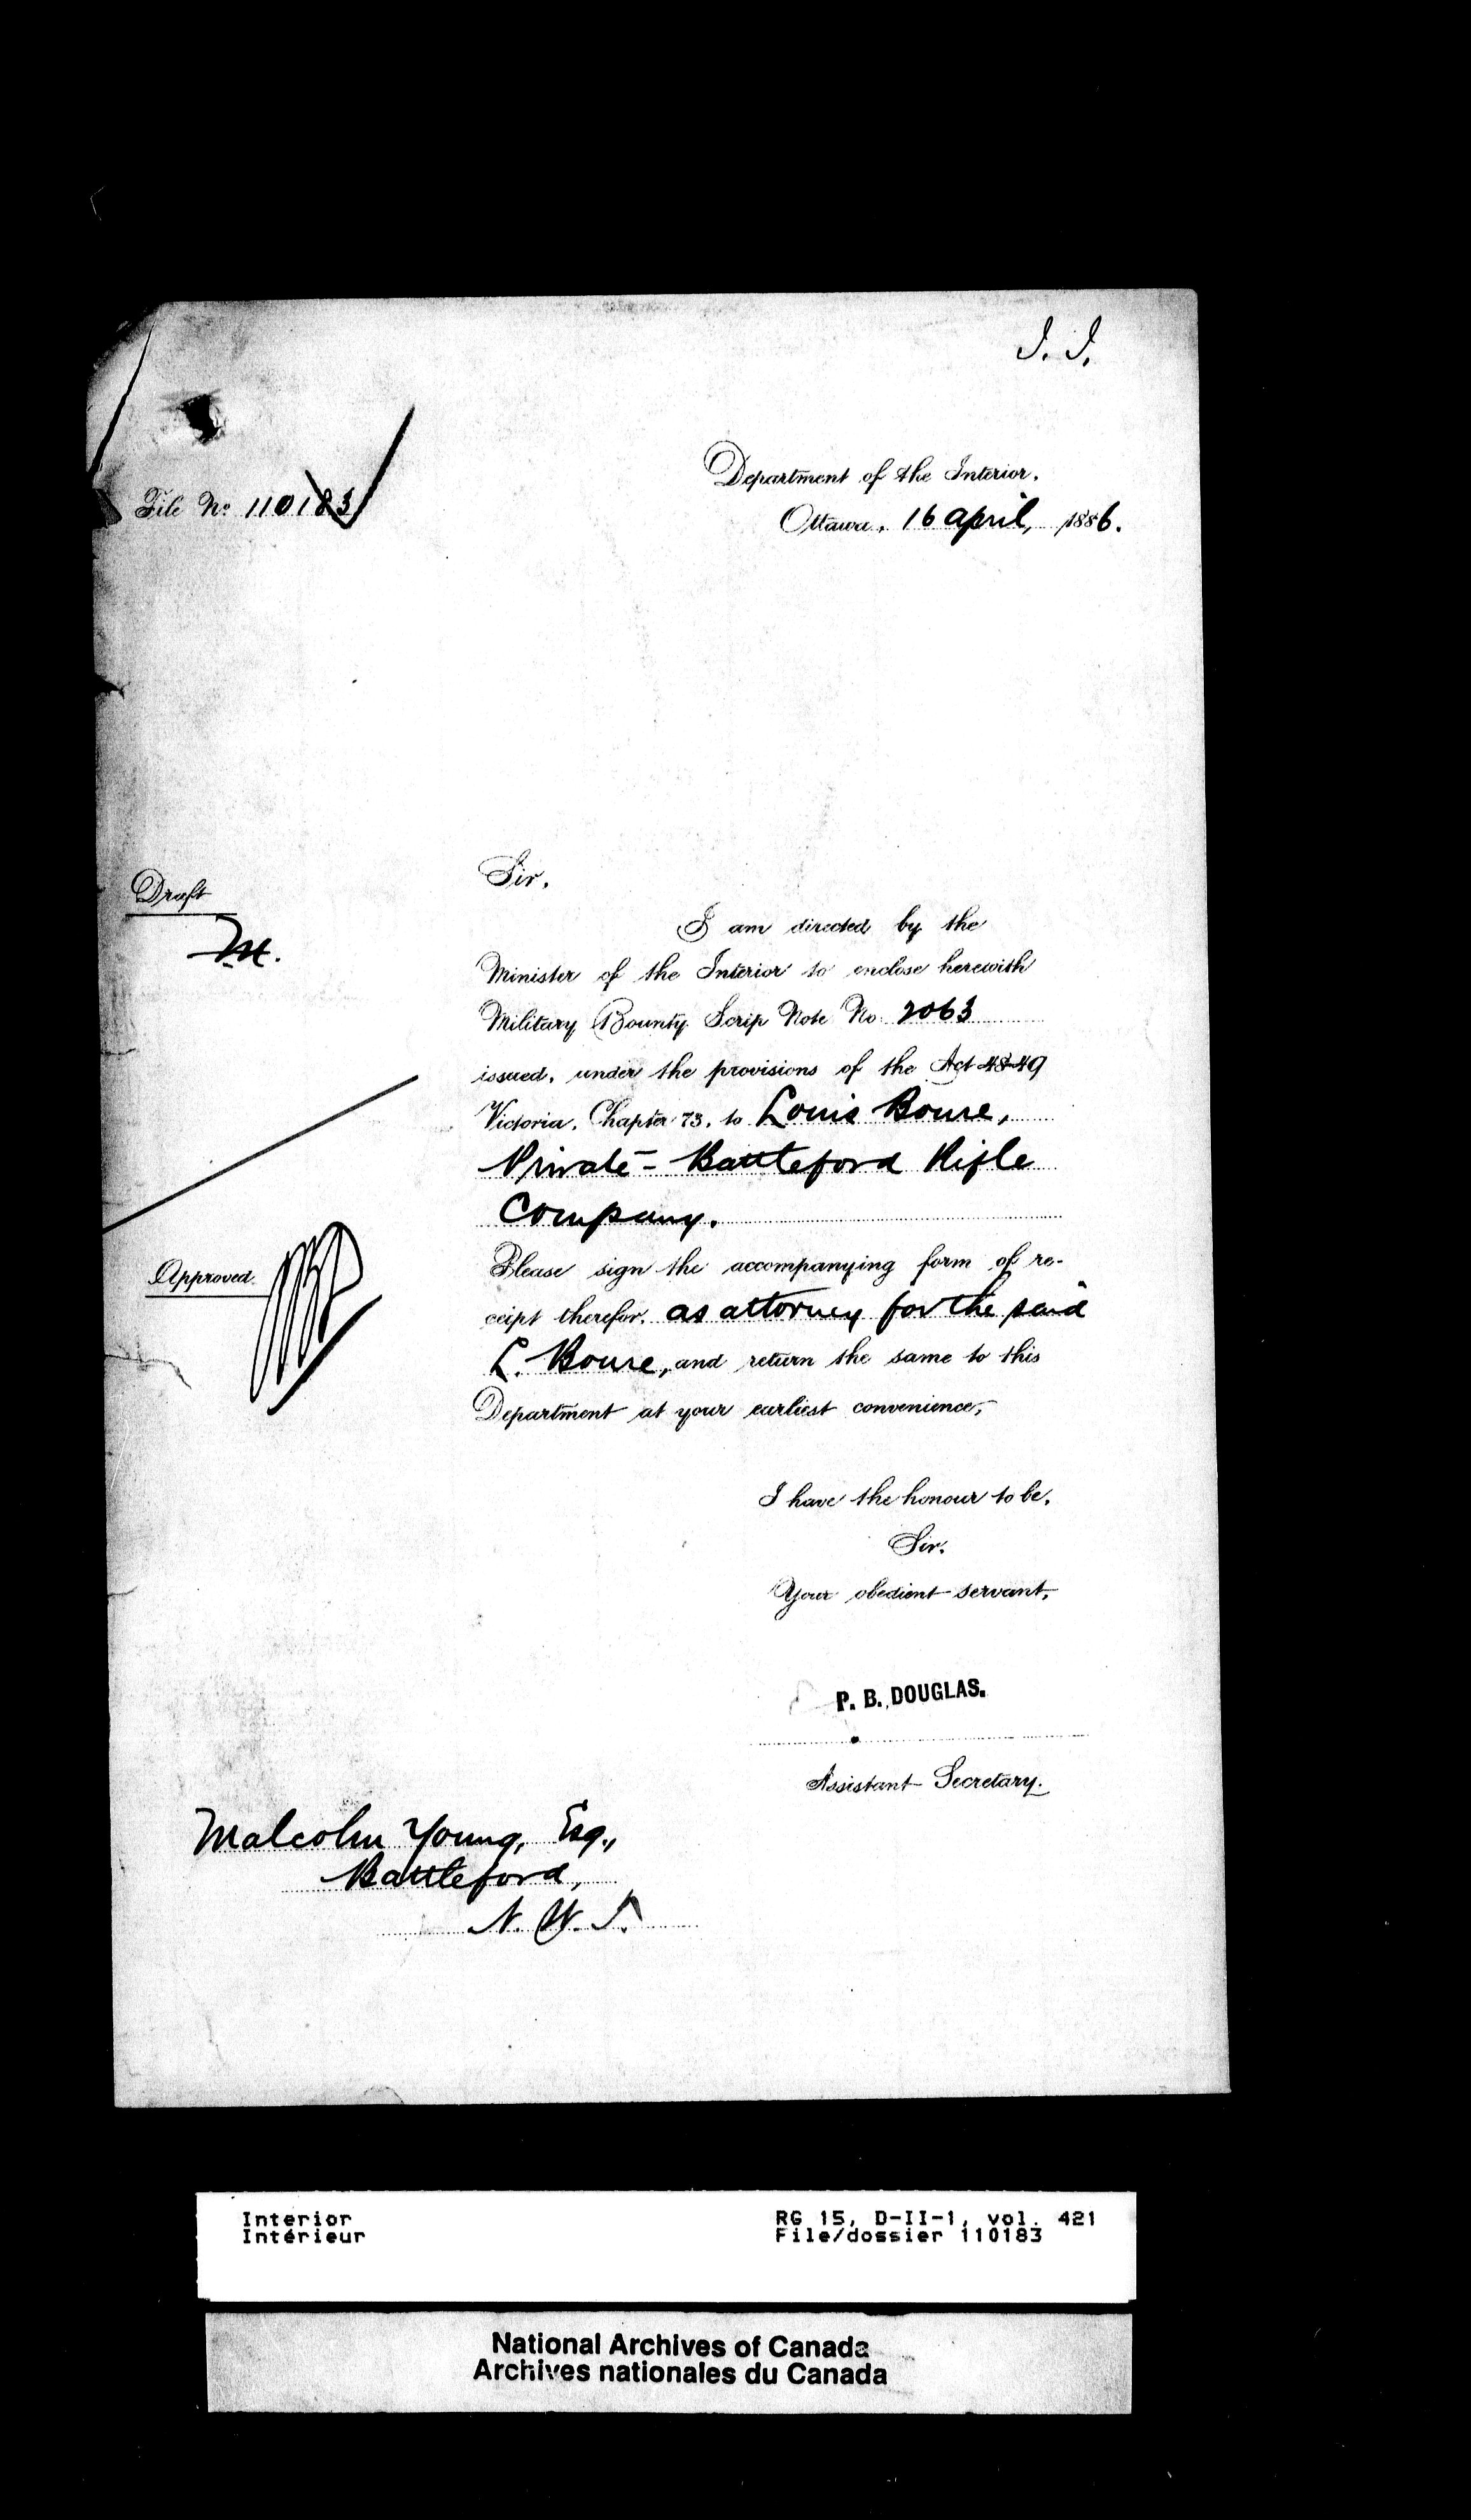 J. J.
Department of the Interior,
File No. 110183
Ottawa, 16 April, 1886.
Sir,
Draft
M.
I am directed by the
Minister of the Interior to enclose herewith
Military Bounty Scrip Note No. 2063
issued, under the provisions of the Act 48-49
Victoria, Chapter 73, to Louis Boure,
Private - Battleford Rifle
Company.
Approved.
Please sign the accompanying form of re-
ceipt therefor, as attorney for the said
L. Boure, and return the same to this
Department at your earliest convenience,
I have the honour to be,
Sir,
Your obedient servant,
P. B. DOUGLAS.
Assistant Secretary.
Malcolm Young, Esq.,
Battleford,
N. W. T.
Interior RG 15, D-II-1, vol. 421
Intérieur File/dossier 110183
National Archives of Canada
Archives nationales du Canada